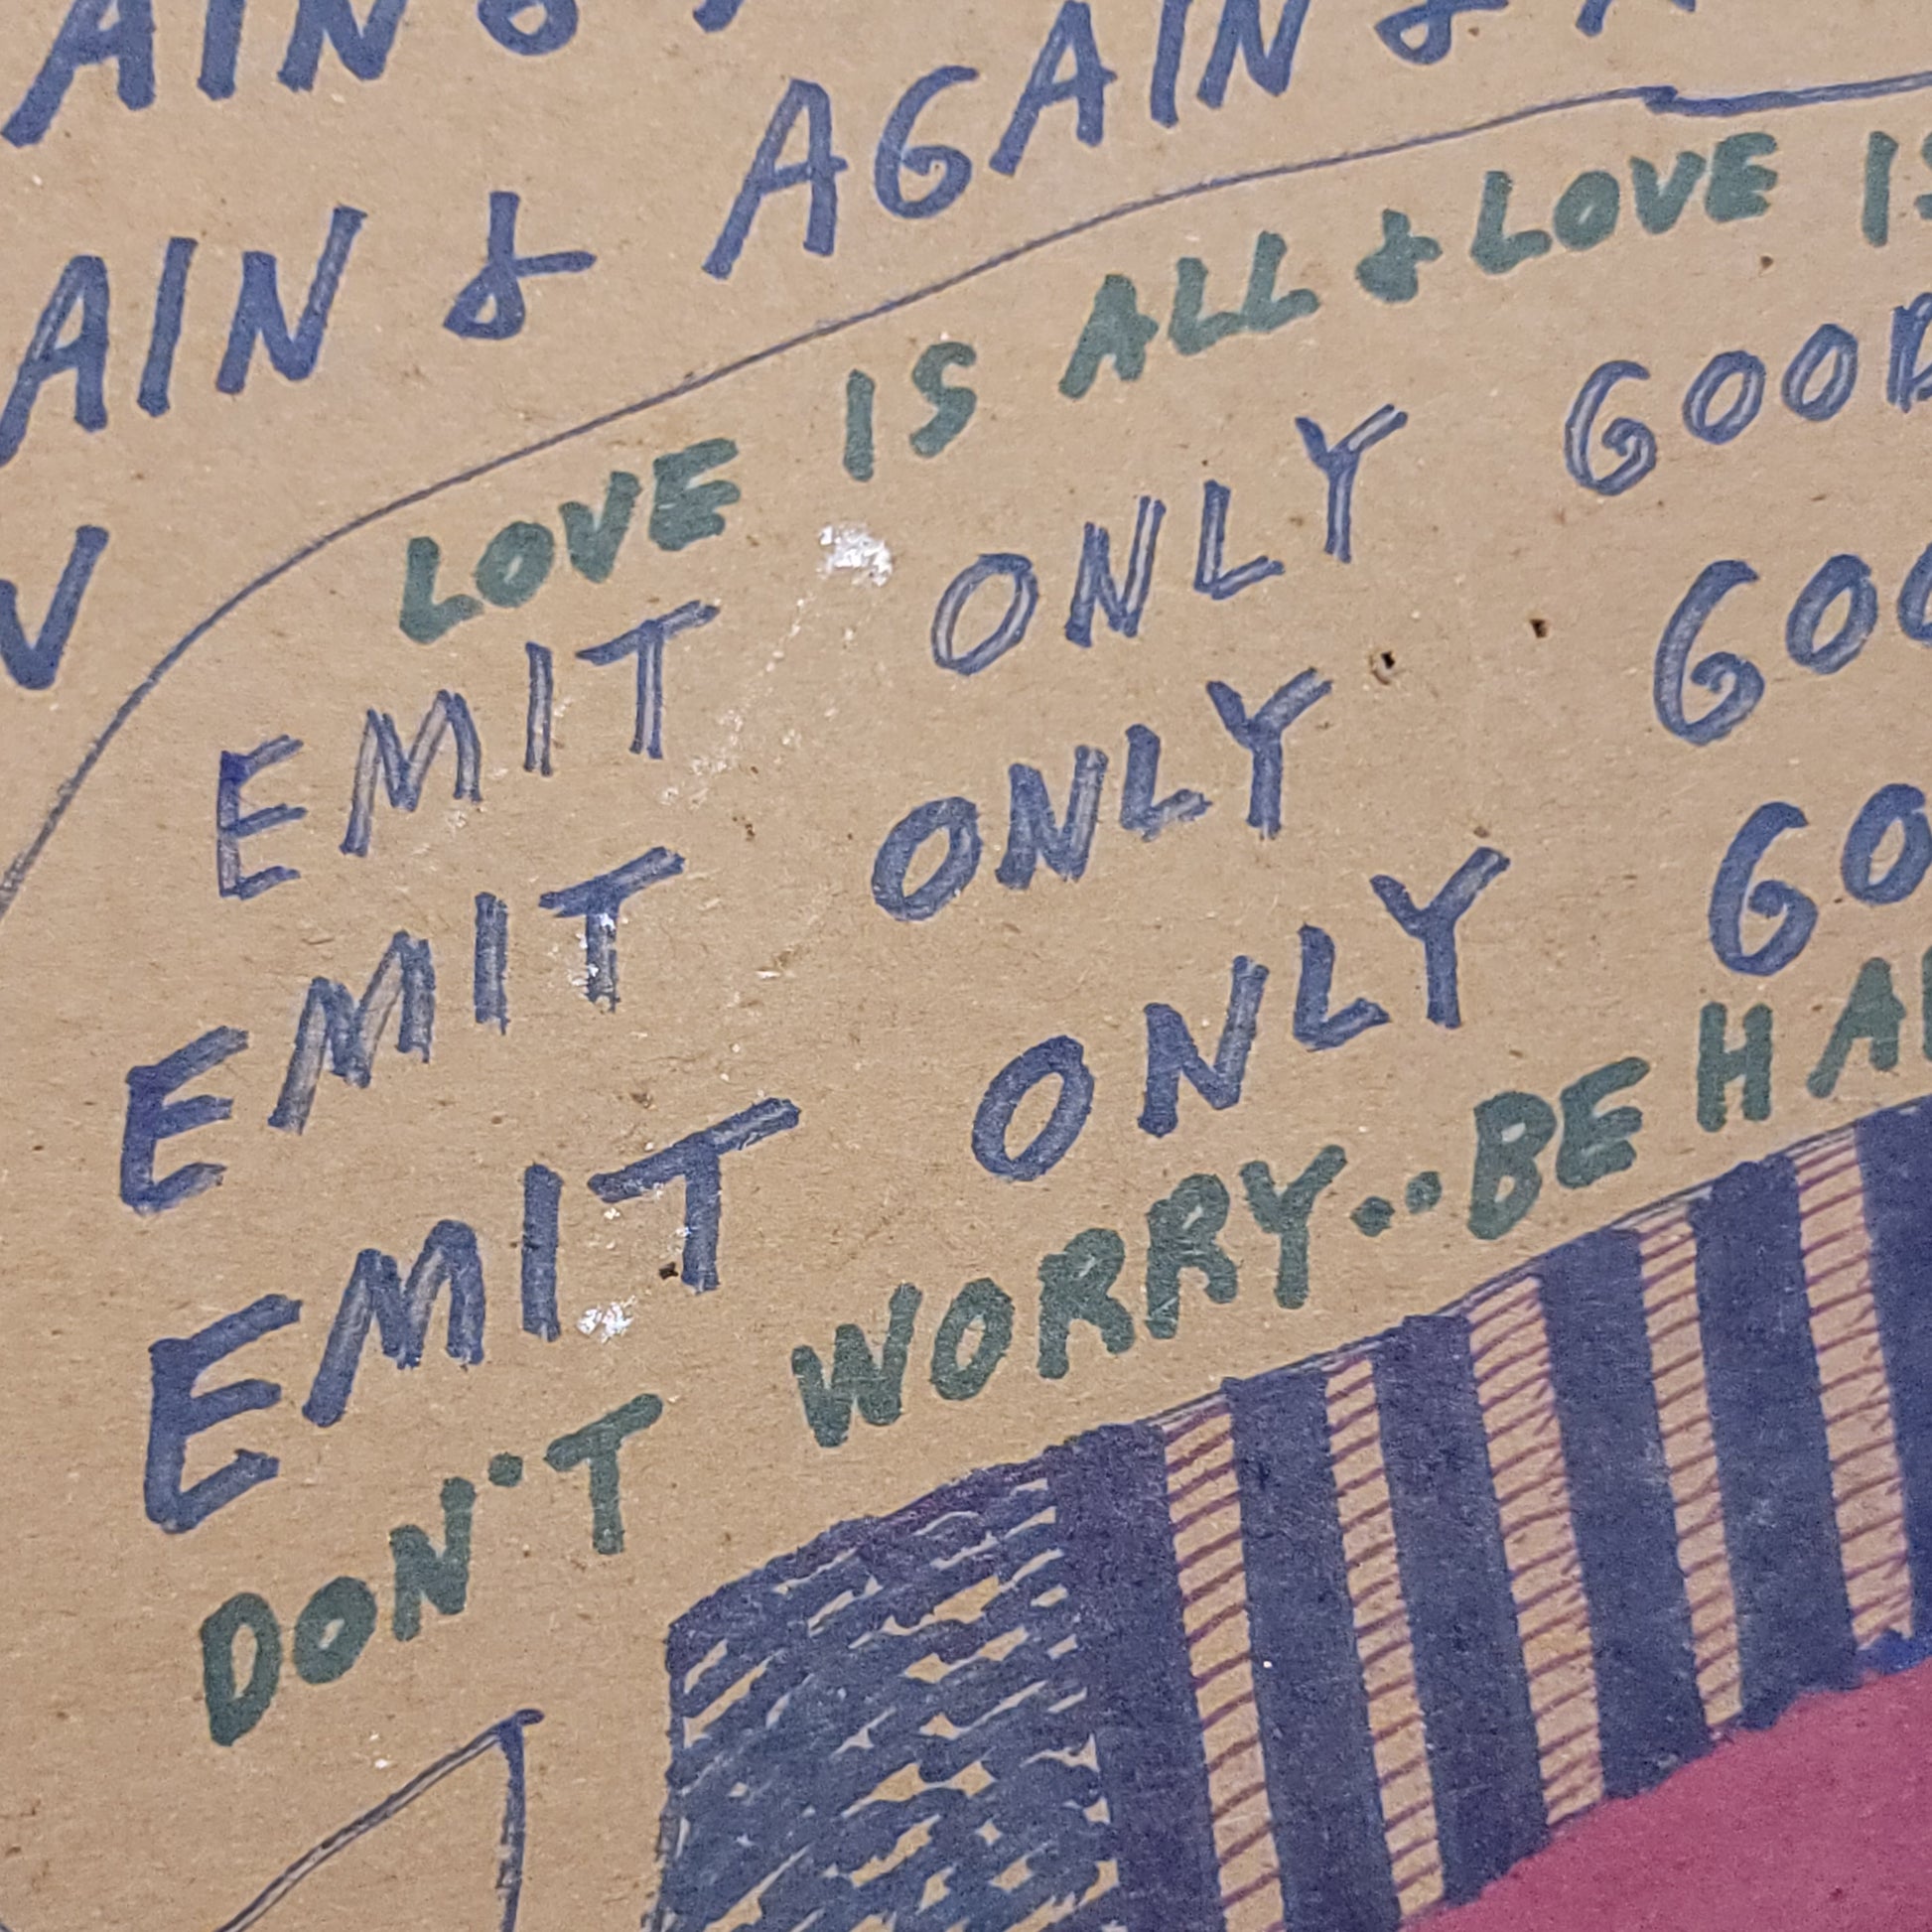 AIN &
AIN & AGAIN &
LOVE IS ALL & LOVE IS
EMIT ONLY GOOD
EMIT ONLY GOO
EMIT ONLY GO
DON'T WORRY..BE HAP